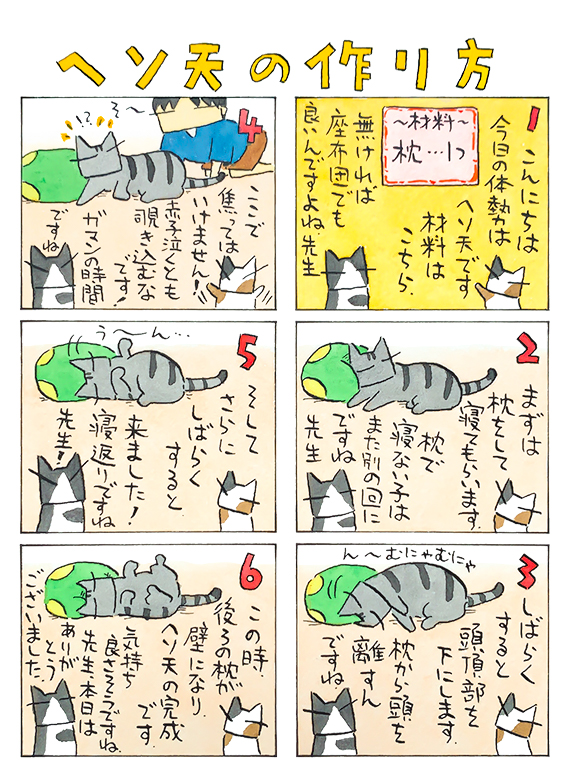 ヘソ天の作り方
1
こんにちは
今日の体勢は
ヘソ天です
材料は
こちら
～材料～
枕…1つ
無ければ
座布団でも
良いんですよね先生
2
まずは
枕をして
寝てもらいます
枕で
寝ない子は
また別の回に
ですね
先生
3
ん～むにゃむにゃ
しばらく
すると
頭頂部を
下にします
枕から頭を
離すん
ですね
4
!?
そ～
ここで
焦っては
いけません!
赤子泣くとも
覗き込むな
です!
ガマンの時間
ですね
5
う～ん…
そして
さらに
しばらく
すると
来ました!
寝返りですね
先生!
6
この時
後ろの枕が
壁になり
ヘソ天の完成
です
気持ち
良さそうですね
先生、本日は
ありが
とう
ございました